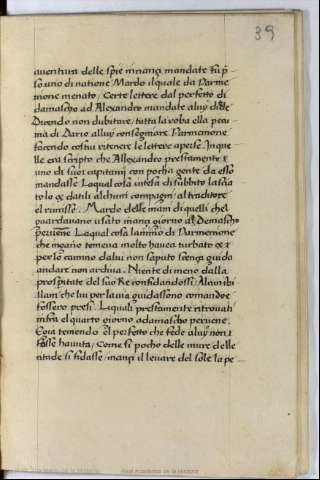 39
aventura delle spie innanzi mandate fu p̃
so uno di natione Mardo il quale da Parme
nione menato / Certe lettere dal perfetto di
damascho ad Alexandro mandate aluy dede
Dicendo non dubitare / tutta la roba ella pecu
nia di Dario alluy consegniare Parmenione
facendo costui ritenere le lettere aperse. In que
lle era scripto che Allexandro prestamente
uno di suoi capitanij con pocha gente da esso
mandasse Laqual cosa intesa di subbito lascia
tolo datili alchuni compagni al traditore
el rimisse. Mardo delle mani di quelli chel
guardavano uscito inanzi giorno a Demascho
pervenne Laqual cosa lanimo di Parmenione
che ingano temeva molto havea turbato
per lo camino dalui non saputo senza guida
andare non ardiva. Niente di meno dalla
prosperitate del suo Re confidandossi Alcuni
che lui per la via guidassono comandoe
fossero presi. Li quali prestamente ritrovati
infra el quarto giorno a damascho pervene.
Egia temendo el perfetto che fede aluy non
fosse havuta / Come si pocho delle mure delle
citade si fidasse / inanzi il levare del sole la pe